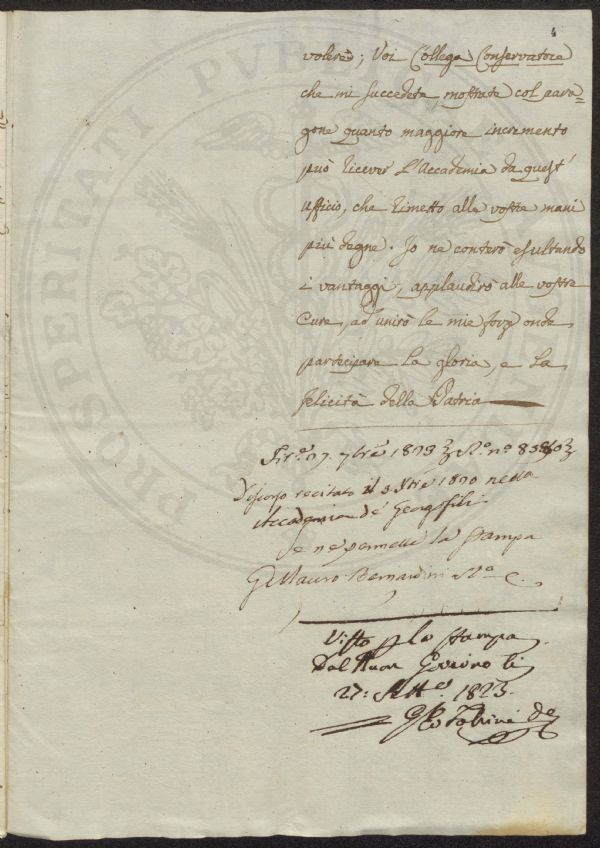 4
volere; Voi Collega Conservatore
che mi succedete, mostrate col para=
gone quanto maggiore incremento
può ricever L'Accademia da quest'
ufficio, che rimetto alle vostre mani
più degne. Io ne conterò esultando
i vantaggj, applaudirò alle vostre
cure, ad unirò le mie forze onde
partecipare la gloria, e la
felicità della Patria
7bre 1823
Discorso recitato il 3 1820 nella
Accademia de' Georgofili
se ne permette la stampa
Mauro Bernardini
Visto p la stampa
Dal Buon Governo li
27: Sette 1823.
PROSPERITATI PVBLICAE